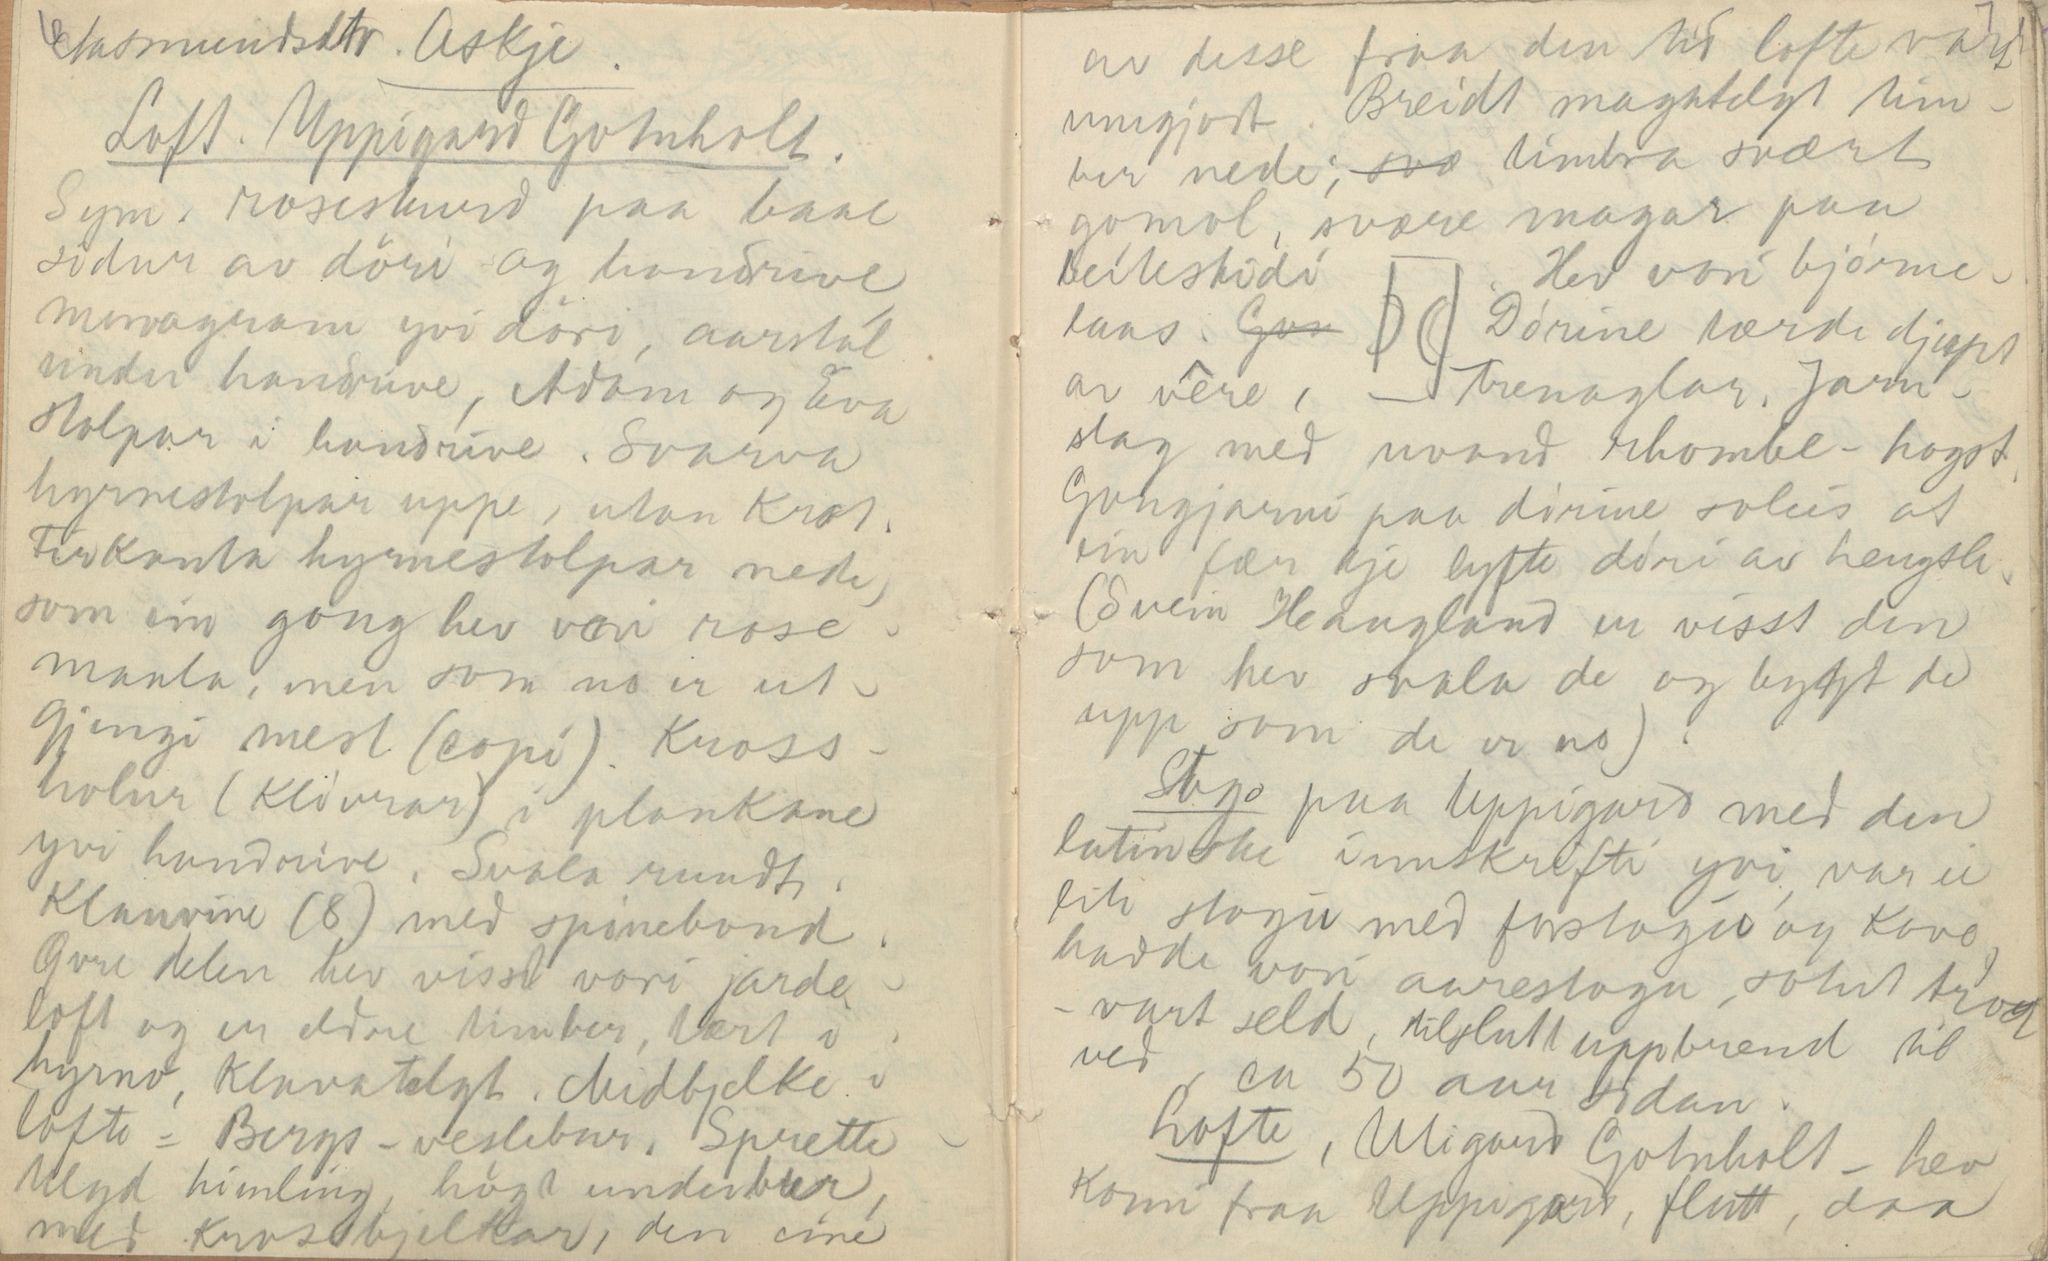 Aasmundsdtr. Askje.
Loft. Uppigard Gotuholt.
Sym. roseskurd paa baae
sidur av döri og handrive,
monagram yvi döri, aarstal
under handrive, Adam og Eva
stolpar i handrive. Svarva
hyrnestolpar uppe, utan Krot.
Firkanta hyrnestolpar nede,
som ein gong hev vori rose-
maala, men som no er ut-
gjengi mest (copi). Kross-
holur (Klövrar) i plankane
yvi handrive. Svala rundt.
Klauvine (8) med spinebond.
Övre delen hev visst vori jarde-
loft og er eldre timber, tært i
hyrno, Klavatelgt. Midbjelke i
lofte = Bergs-veslebur. Sprette-
telgd himling, högt under bur,
med krossbjelkar, den eine
7
av desse fraa den tid lofte vart
umgjort. Breidt magatelgt tim-
ber nede; svo timbra svært
gomol, svære magar paa
beiteskidi . Hev vori bjórne-
laas. Gon Dórine tærde djupt
av vêre, — trenaglar. Jarn-
slag med uvand rhombe-hogst.
Gongjarni paa dórine soleis at
ein fær kje lyfte dóri av hengsli.
(Svein Haugland er visst den
som hev svala de og bygt de
upp som de er no).
Stogo paa Uppigard med den
latinske innskrifti yvi, var ei
liti stogu med forstogu og Kovo,
hadde vori aarestogu, sotut tro
- vart seld, tilslutt uppbrend til
ved, ca 50 aar sidan.
Lofte, Utigard Gotuholt - hev
komi fraa Uppigard, flutt, daa